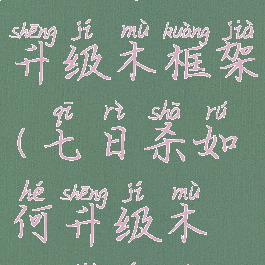 shēng jí mù kuàng jià
升级木框架
qī rì shā rú
(七日杀如
hé shēng jí mù
何升级木